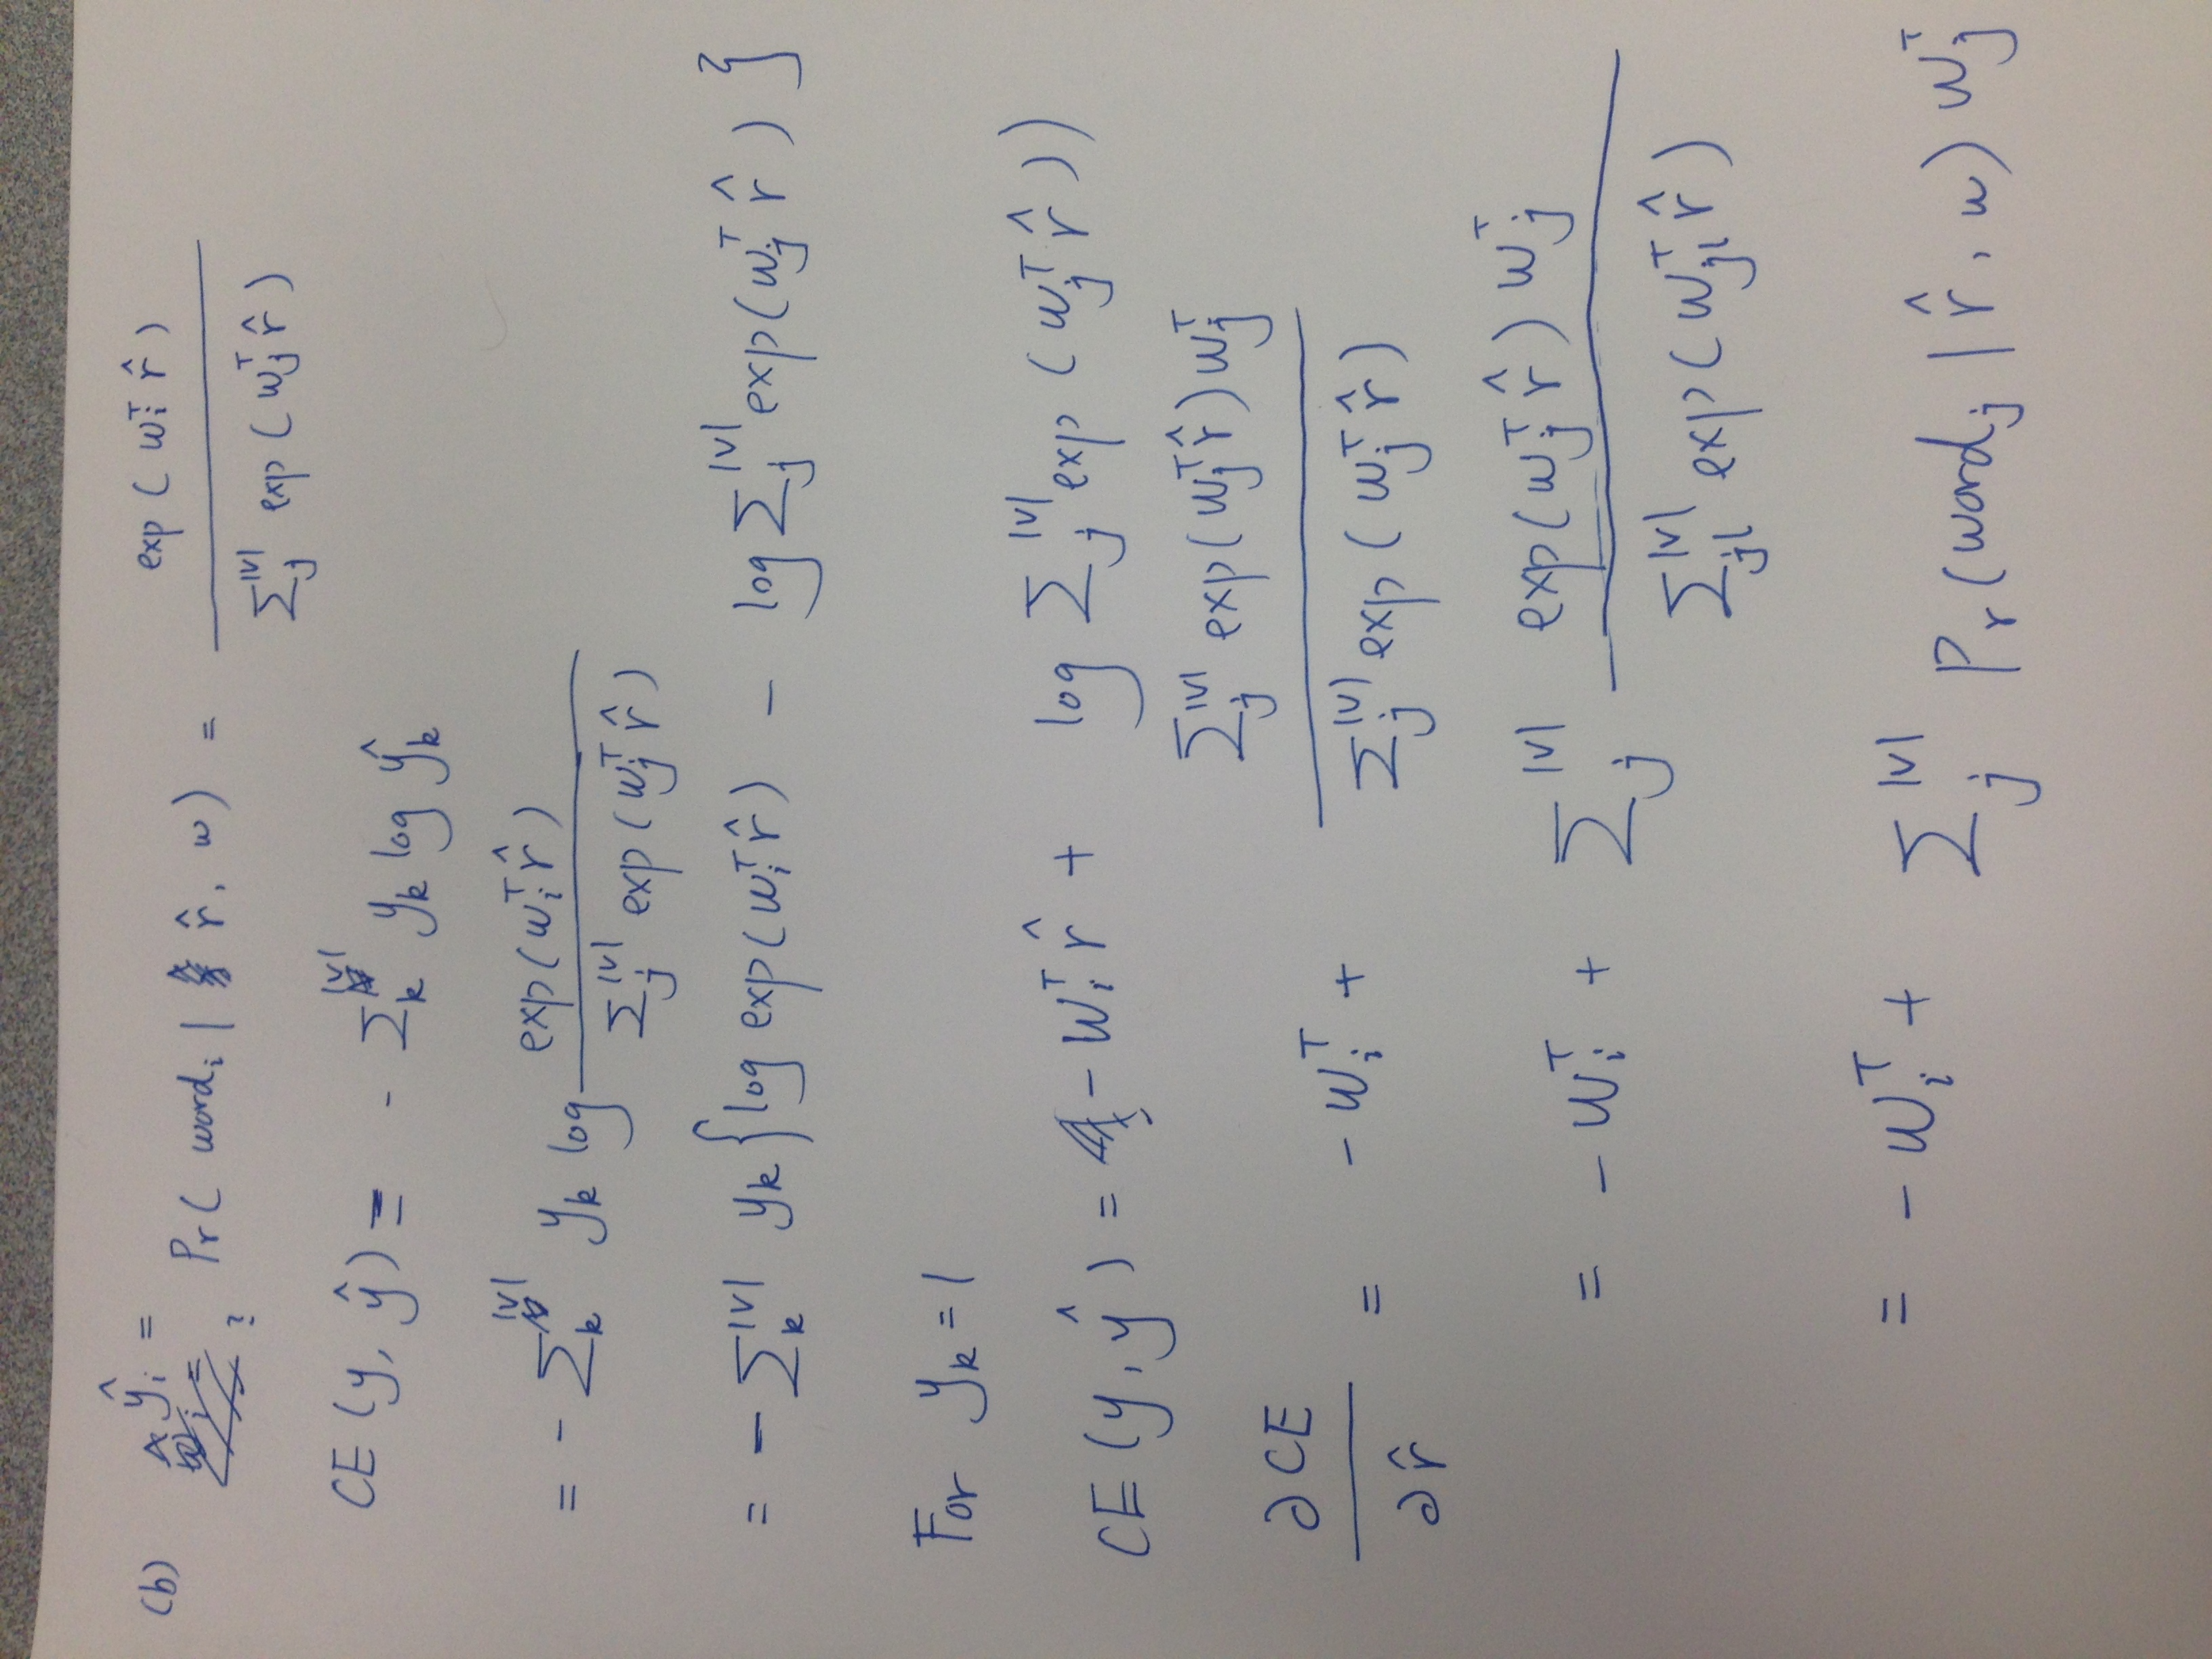 (b) ŷ_i = Pr( word_i | r̂, w) = exp ( w_i^T r̂ ) / Σ_j^|V| exp ( w_j^T r̂ )
?
CE (y, ŷ) = - Σ_k^|V| y_k log ŷ_k
= - Σ_k^|V| y_k log exp( w_i^T r̂ ) / Σ_j^|V| exp ( w_j^T r̂ )
= - Σ_k^|V| y_k { log exp( w_i^T r̂ ) - log Σ_j^|V| exp( w_j^T r̂ ) }
For y_k = 1
CE (y, ŷ) = - w_i^T r̂ + log Σ_j^|V| exp ( w_j^T r̂ ))
∂CE / ∂r̂ = - w_i^T + Σ_j^|V| exp( w_j^T r̂ ) w_j^T / Σ_j^|V| exp ( w_j^T r̂ )
= - w_i^T + Σ_j^|V| exp( w_j^T r̂ ) w_j^T / Σ_j1^|V| exp( w_j1^T r̂ )
= - w_i^T + Σ_j^|V| Pr (word_j | r̂, w) w_j^T